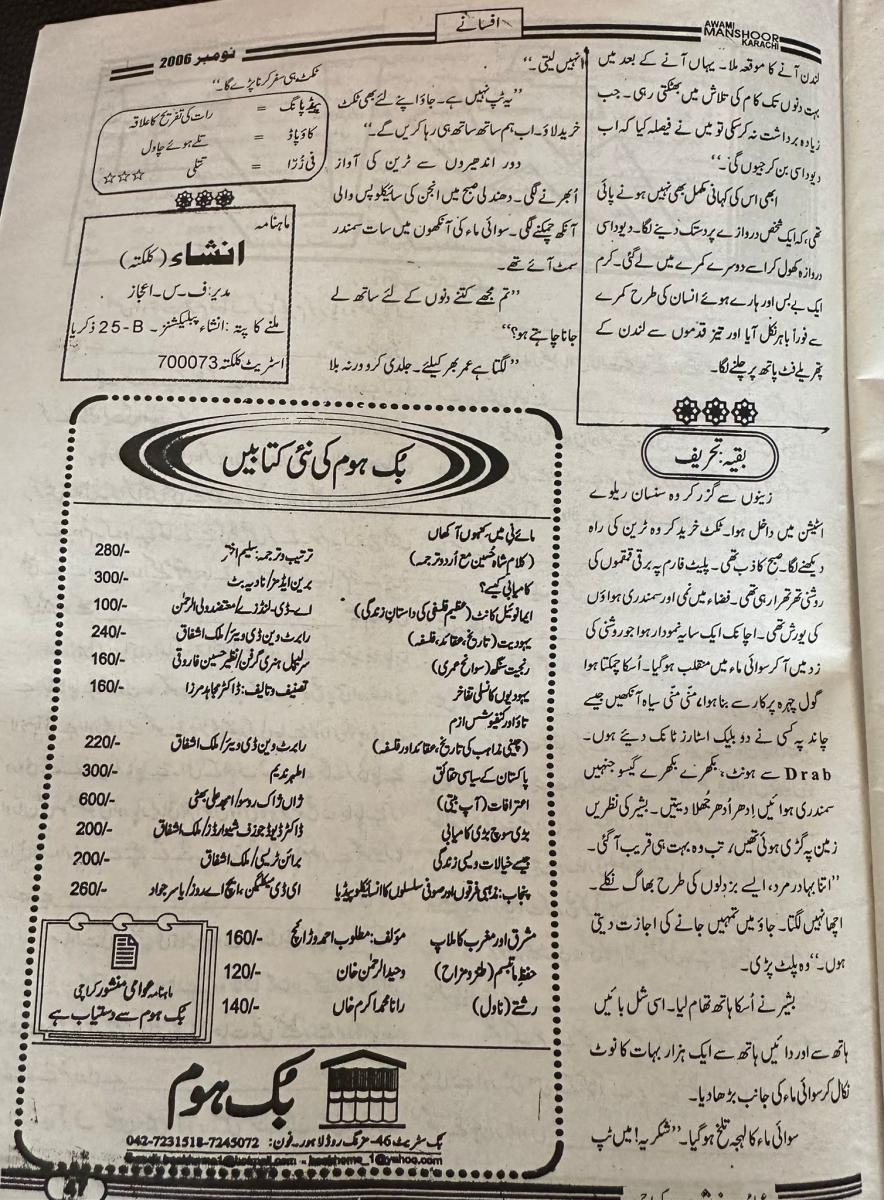 AWAMI
MANSHOOR
KARACHI
افسانے
نومبر 2006
لندن آنے کا موقعہ ملا۔ یہاں آنے کے بعد میں
بہت دنوں تک کام کی تلاش میں بھٹکتی رہی۔ جب
زیادہ برداشت نہ کر سکی تو میں نے فیصلہ کیا کہ اب
دیوداسی بن کر جیوں گی۔‘‘
ابھی اس کی کہانی مکمل بھی نہیں ہونے پائی
تھی، کہ ایک شخص دروازے پر دستک دینے لگا۔ دیوداسی
دروازہ کھول کر اسے دوسرے کمرے میں لے گئی۔ کرم
ایک بے بس اور ہارے ہوئے انسان کی طرح کمرے
سے فوراً باہر نکل آیا اور تیز قدموں سے لندن کے
پتھریلے فٹ پاتھ پر چلنے لگا۔
بقیہ: تحریف
زینوں سے گزر کر وہ سنسان ریلوے
اسٹیشن میں داخل ہوا۔ ٹکٹ خرید کر وہ ٹرین کی راہ
دیکھنے لگا۔ صبح کاذب تھی۔ پلیٹ فارم پہ برقی قمقموں کی
روشنی تھرتھرا رہی تھی۔ فضاء میں نمی اور سمندری ہواؤں
کی یورش تھی۔ اچانک ایک سایہ نمودار ہوا جو روشنی کی
زد میں آ کر سوائی ماء میں منقلب ہو گیا۔ اُسکا چمکتا ہوا
گول چہرہ پرکار سے بنا ہوا، منی منی سیاہ آنکھیں جیسے
چاند پہ کسی نے دو بلیک اسٹارز ٹانک دیئے ہوں۔
Drab سے ہونٹ، بکھرے بکھرے گیسو جنہیں
سمندری ہوائیں اِدھر اُدھر جُھلا دیتیں۔ بشیر کی نظریں
زمین پہ گڑی ہوئی تھیں، تب وہ بہت ہی قریب آ گئی۔
’’اتنا بہادر مرد، ایسے بزدلوں کی طرح بھاگ نکلے۔
اچھا نہیں لگتا۔ جاؤ میں تمہیں جانے کی اجازت دیتی
ہوں۔‘‘ وہ پلٹ پڑی۔
بشیر نے اُسکا ہاتھ تھام لیا۔ اسی شل بائیں
ہاتھ سے اور دائیں ہاتھ سے ایک ہزار بہات کا نوٹ
نکال کر سوائی ماء کی جانب بڑھا دیا۔
سوائی ماء کا لہجہ تلخ ہو گیا۔ ’’شکریہ! میں ٹپ
انہیں لیتی۔‘‘
’’یہ ٹپ نہیں ہے۔ جاؤ اپنے لئے بھی ٹکٹ
خرید لاؤ۔ اب ہم ساتھ ساتھ ہی رہا کریں گے۔‘‘
دور اندھیروں سے ٹرین کی آواز
اُبھرنے لگی۔ دھندلی صبح میں انجن کی سائیکلوپس والی
آنکھ چمکنے لگی۔ سوائی ماء کی آنکھوں میں سات سمندر
سمٹ آئے تھے۔
’’تم مجھے کتنے دنوں کے لئے ساتھ لے
جانا چاہتے ہو؟‘‘
’’لگتا ہے عمر بھر کیلئے۔ جلدی کرو ورنہ بلا
ٹکٹ ہی سفر کرنا پڑے گا۔‘‘
پیڈ پانگ = رات کی تفریح کا علاقہ
کاؤپاڈ = تلے ہوئے چاول
فی ڈرّا = تتلی
☆☆☆
ماہنامہ
انشاء (کلکتہ)
مدیر: ف۔س۔اعجاز
ملنے کا پتہ: انشاء پبلیکشنز۔ 25-B ذکریا
اسٹریٹ کلکتہ 700073
بُک ہوم کی نئی کتابیں
مائے نی میں کنہوں آکھاں
(کلام شاہ حُسین مع اُردو ترجمہ) ترتیب و ترجمہ: سلیم اختر 280/-
کامیابی کیسے؟ برین ایڈمز/ نادیہ بٹ 300/-
ایمانوئیل کانٹ (عظیم فلسفی کی داستانِ زندگی) اے-ڈی-لنڈزے/ معتضد ولی الرحمٰن 100/-
یہودیت (تاریخ، عقائد، فلسفہ) رابرٹ وین ڈی ویئر/ ملک اشفاق 240/-
رنجیت سنگھ (سوانح عمری) سر لیپل ہنری گرفن/ نظیر حسین فاروقی 160/-
یہودیوں کا نسلی تفاخر تصنیف و تالیف: ڈاکٹر مجاہد مرزا 160/-
تاؤ اور کنفیوشس ازم
(چینی مذاہب کی تاریخ، عقائد اور فلسفہ) رابرٹ وین ڈی ویئر/ ملک اشفاق 220/-
پاکستان کے سیاسی حقائق اطہر ندیم 300/-
اعترافات (آپ بیتی) ژاں ژاک روسو/ امجد علی بھٹی 600/-
بڑی سوچ بڑی کامیابی ڈاکٹر ڈیوڈ جوزف شیوارڈز/ ملک اشفاق 200/-
جیسے خیالات ویسی زندگی برائن ٹریسی/ ملک اشفاق 200/-
پنجاب: مذہبی فرقوں اور صوفی سلسلوں کا انسائیکلوپیڈیا ای ڈی میکلیگن، ایچ اے روز/ یاسر جواد 260/-
مشرق اور مغرب کا ملاپ مؤلف: مطلوب احمد وڑائچ 160/-
حفظِ ماتبسم (طنز و مزاح) وحید الرحمٰن خان 120/-
رشتے (ناول) رانا محمد اکرم خاں 140/-
ماہنامہ عوامی منشور کراچی
بُک ہوم سے دستیاب ہے
بُک ہوم
بُک سٹریٹ 46-مزنگ روڈ لاہور۔ فون: 042-7231518-7245072
bookhome_1@yahoo.com